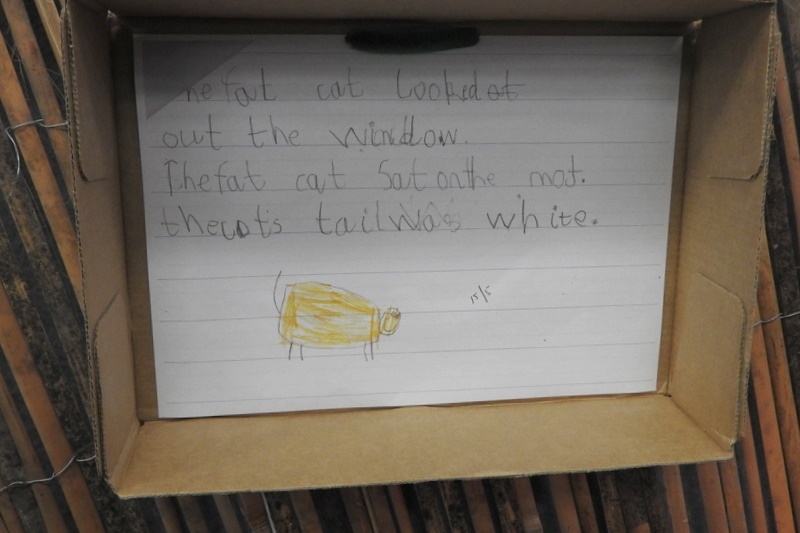 The fat cat looked at
out the window.
The fat cat Sat on the mat.
the cat's tail was white.
15/5